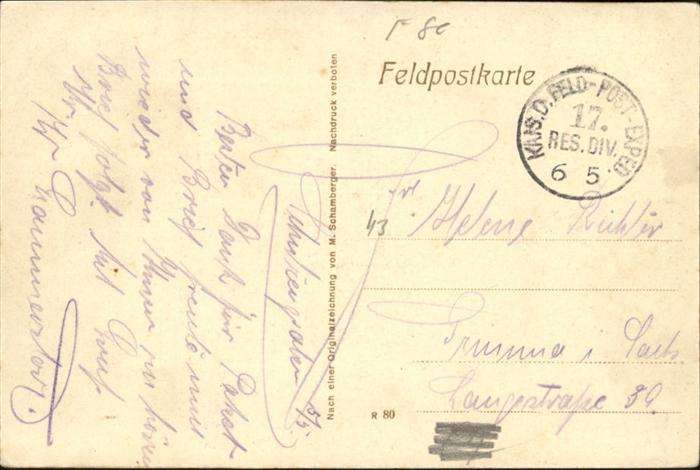 F 80
Feldpostkarte
KAIS. D. FELD-POST-EXPED
17.
RES. DIV.
6 5
43
Helene Richter
Grimma i. Sachs
Langestraße 39.
R 80
Nach einer Originalzeichnung von M. Schamberger. Nachdruck verboten
5/5.
Besten Dank für Paket
und Brief freute mich
wieder von Ihnen zu hören
Brief folgt. Mit Gruß